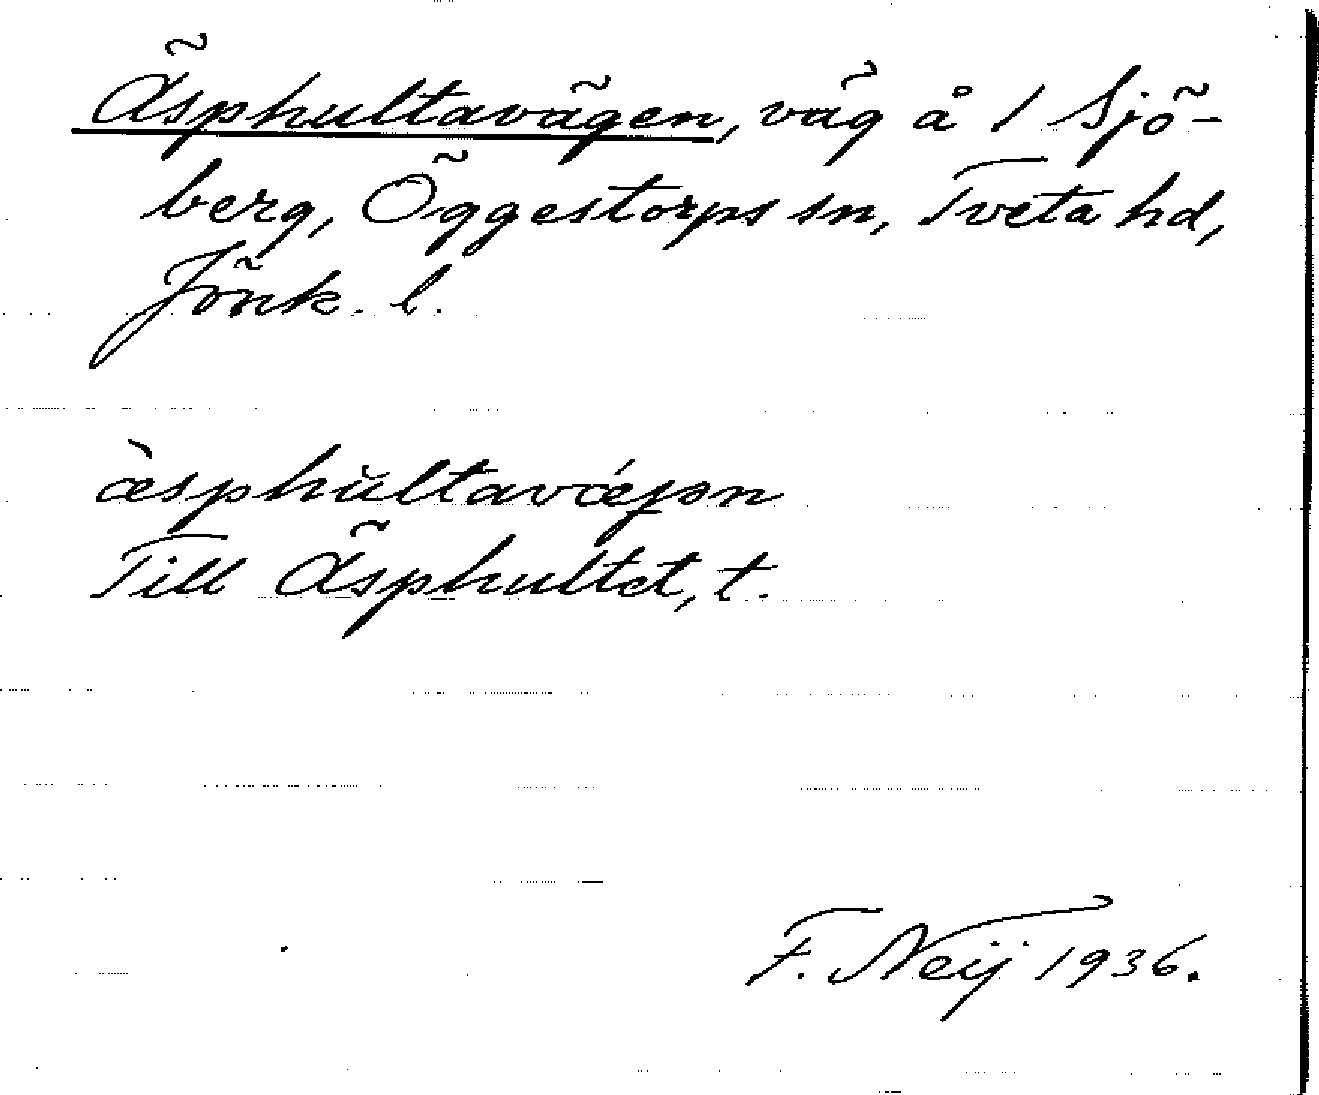 Äsphultavägen, väg å 1 Sjö-
berg, Öggestorps sn, Tveta hd,
Jönk. l.
æ̀sphŭltavǽjən
Till Äsphultet, t.
F. Neij 1936.